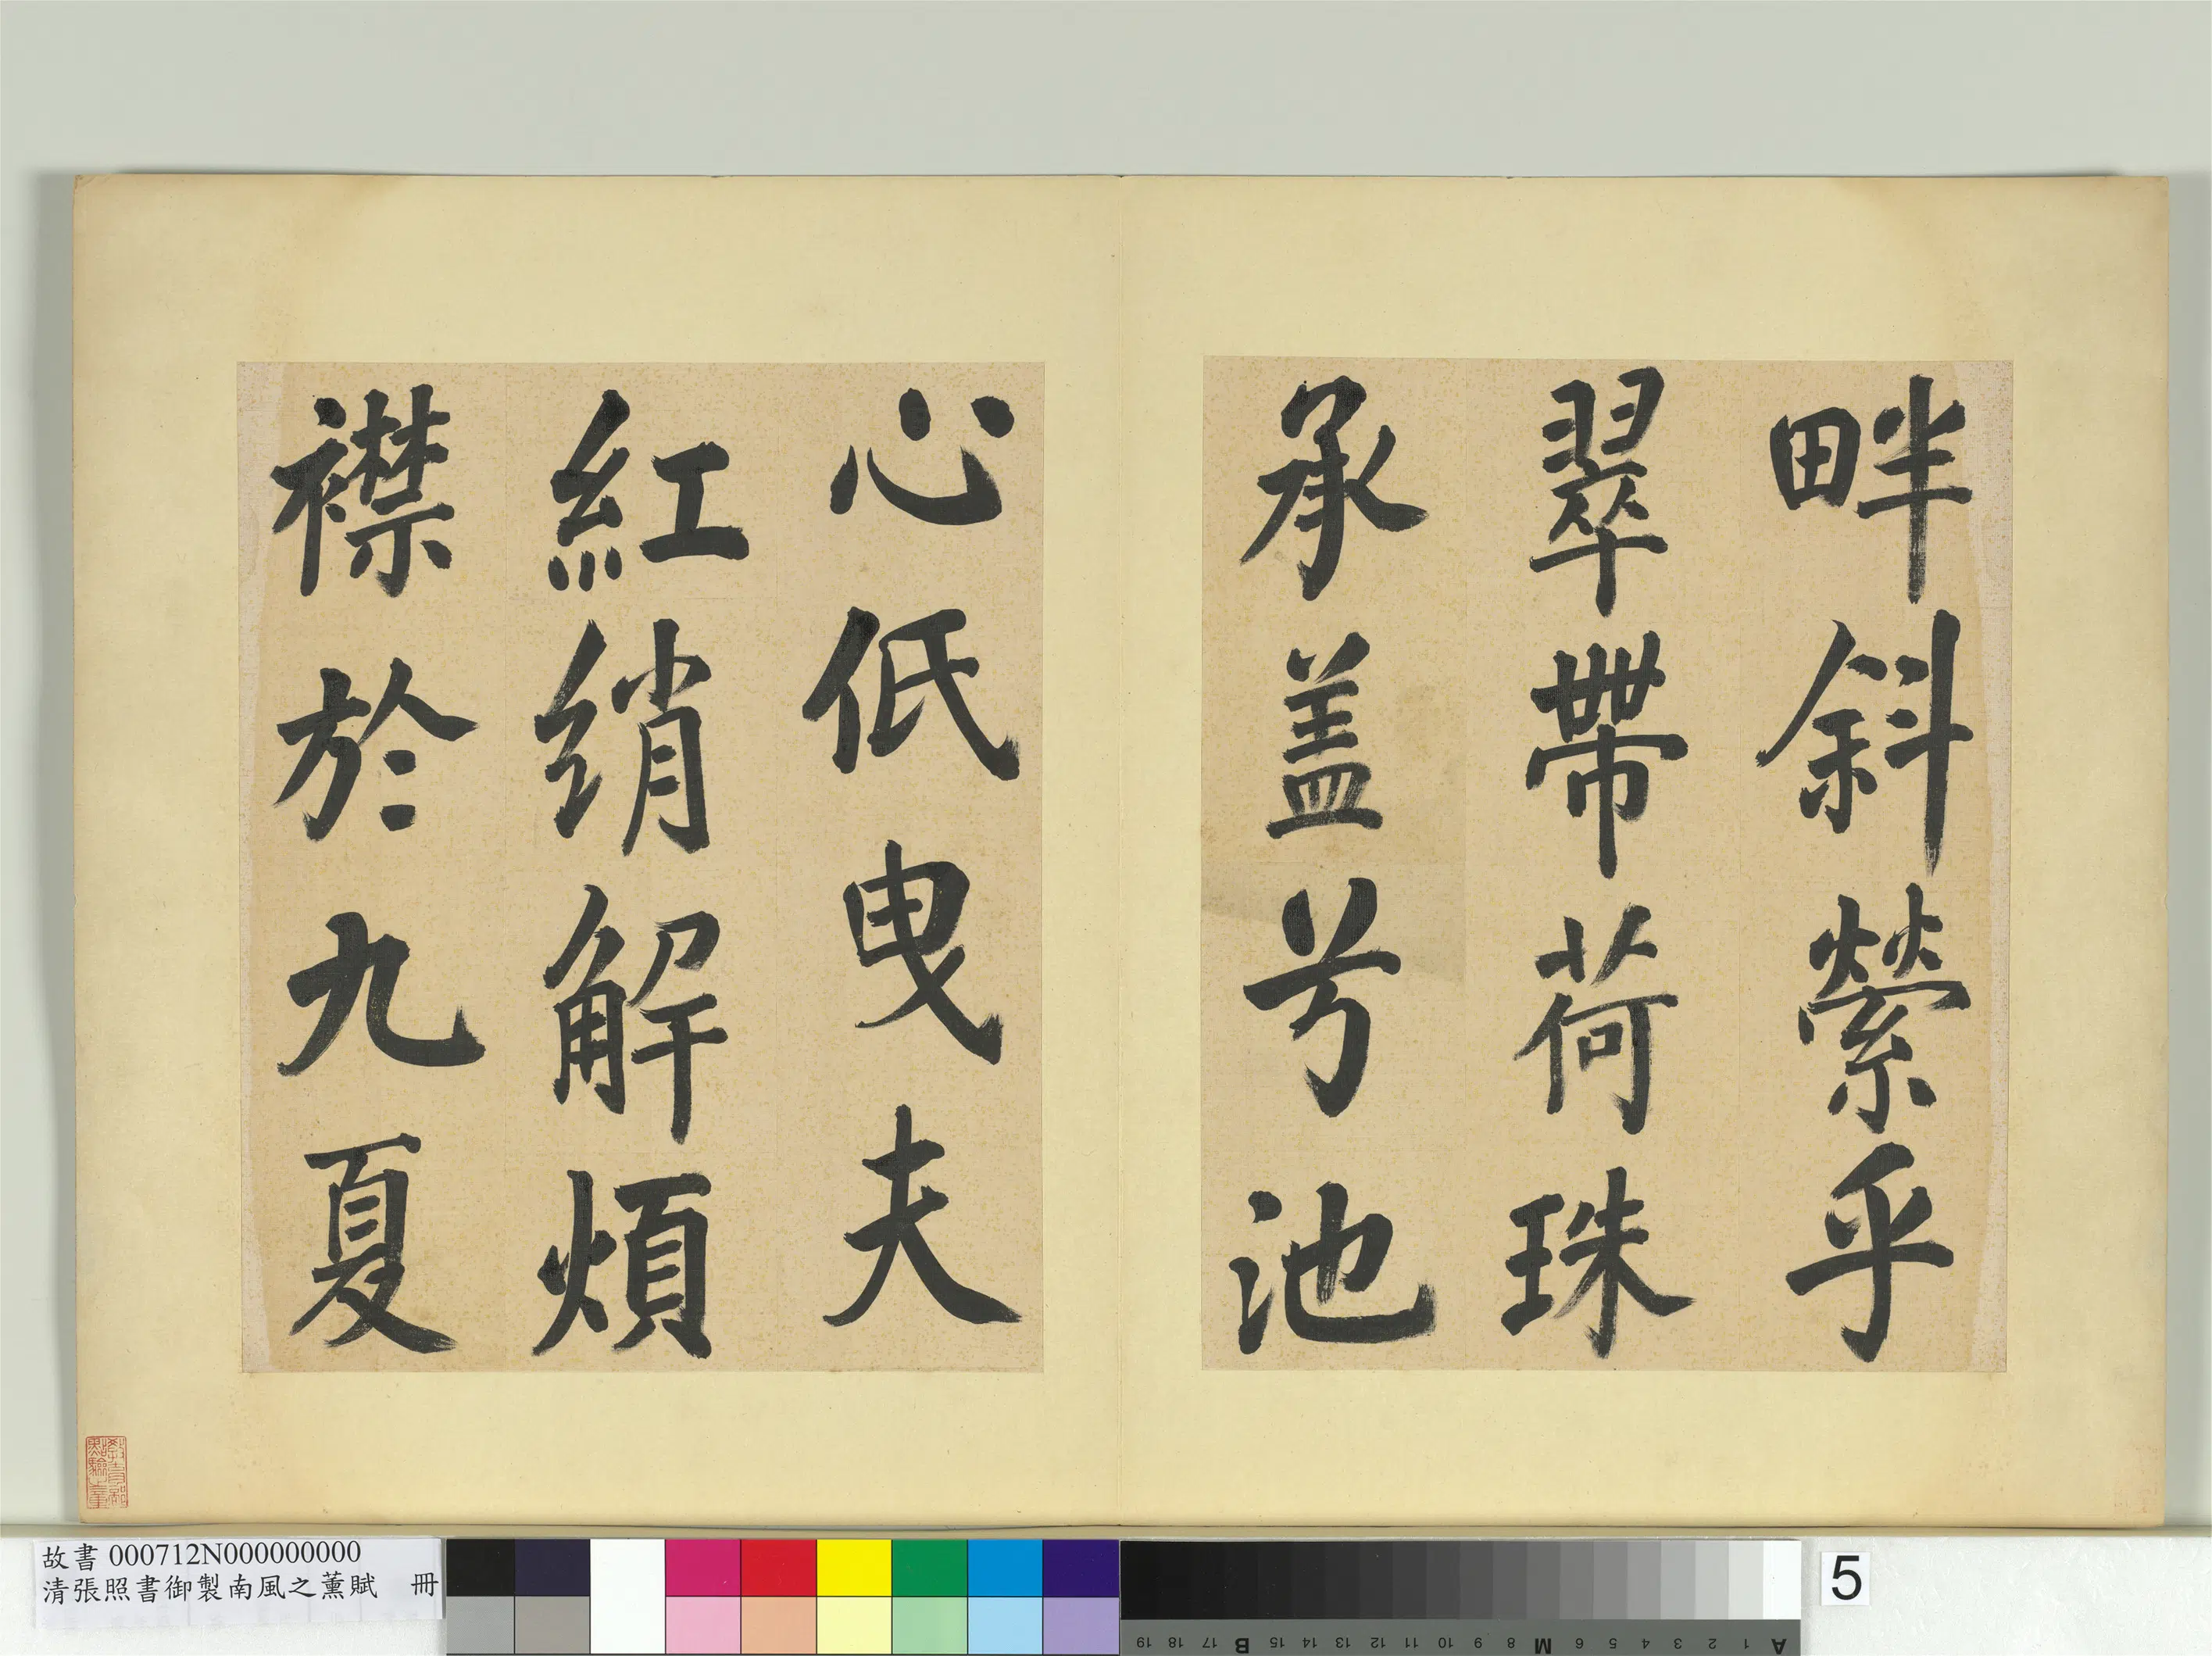 畔斜縈乎
翠帶荷珠
承盖兮池
心低曳夫
紅綃解煩
襟於九夏
故書 000712N000000000
清張照書御製南風之薰賦 冊
5
19 18 17 B 15 14 13 12 11 10 9 8 M 6 5 4 3 2 1 A